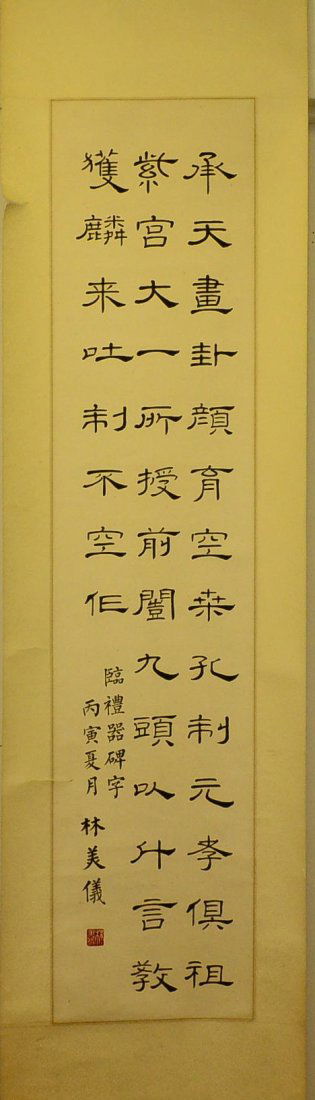 承天畫卦顔育空桒孔制元孝俱祖
紫宮大一所授前闓九頭以什言教
獲麟来吐制不空作
臨禮器碑字
丙寅夏月
林美儀